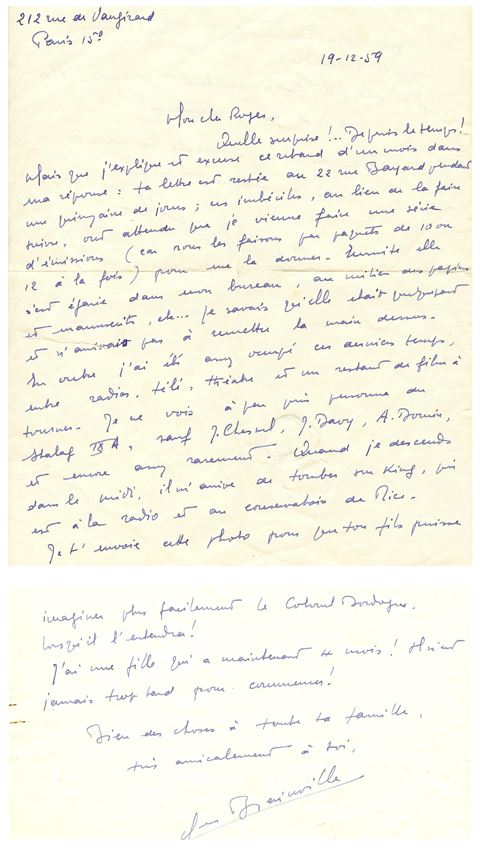 212 rue de Vaugirard
Paris 15°
19-12-59
Mon cher Roger,
Quelle surprise !... Depuis le temps !
Mais que j'explique et excuse ce retard d'un mois dans
ma réponse : ta lettre est restée au 22 rue Bayard pendant
une quinzaine de jours ; ces imbéciles, au lieu de la faire
suivre, ont attendu que je vienne faire une série
d'émissions (car nous les faisons par paquets de 10 ou
12 à la fois) pour me la donner. Ensuite elle
s'est égarée dans mon bureau, au milieu des papiers
et manuscrits, etc... je savais qu'elle était quelque part
et n'arrivais pas à remettre la main dessus.
En outre j'ai été assez occupé ces derniers temps,
entre radios, télé, théâtre et un restant de film à
tourner. Je ne vois à peu près personne du
Stalag IX A, sauf J. Chesnel, J. Davy, A. Bouin,
et encore assez rarement. Quand je descends
dans le midi, il m'arrive de tomber sur King, qui
est à la radio et au conservatoire de Nice.
Je t'envoie cette photo pour que ton fils puisse
imaginer plus facilement le Colonel Dordogne,
lorsqu'il l'entendra !
J'ai une fille qui a maintenant 4 mois ! Il n'est
jamais trop tard pour commencer !
Bien des choses à toute ta famille,
très amicalement à toi,